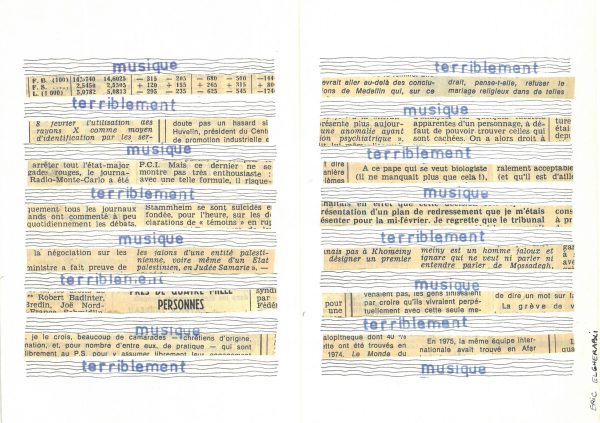 musique
F. B. (100) 14,5740 14,6025 — 315 — 205 — 680 — 500
F. S. 2,5450 2,5505 + 120 + 155 + 265 + 315
L. (1 000) 5,0782 5,0813 — 295 — 235 — 625 — 545
terriblement
8 février l'utilisation des
rayons X comme moyen
d'identification par les ser-
doute pas un hasard si
Huvelin, président du Cent
de promotion industrielle
musique
arrêter tout l'état-major
gades rouges, le journa-
Radio-Monte-Carlo a été
P.C.I. Mais ce dernier ne se
montre pas très enthousiaste :
avec une telle formule, il risque-
terriblement
quement tous les journaux
ands ont commenté à peu
quotidiennement les débats.
Stammheim se sont suicidés e
fondée, pour l'heure, sur les d
clarations de « témoins » en ru
musique
la négociation sur les
ministre a fait preuve de
les jalons d'une entité palesti-
nienne, voire même d'un Etat
palestinien, en Judée Samarie »,
terriblement
Robert Badinter,
bredin, Joë Nord-
PRES DE QUATRE MILLE
PERSONNES
syndi
par
Fédér
musique
je le crois, beaucoup de camarades — chrétiens d'origine,
nation, et, pour nombre d'entre eux, de pratique — qui sont
librement au P.S. pour y assumer librement leur engagement
terriblement
terriblement
evrait aller au-delà des conclu-
ions de Medellin qui, sur ce
drait, pense-t-elle, refuser le
mariage religieux dans de telles
musique
résente plus aujour-
une anomalie ayant
ion psychiatrique ».
apparentes d'un personnage, à dé-
faut de pouvoir trouver celles qui
sont cachées. On a alors droit à
ture
était
depu
terriblement
t dire
anière
lèmes
A ce pape qui se veut biologiste
(il ne manquait plus que cela !),
ralement acceptable
(et qu'il est d'aille
musique
présentation d'un plan de redressement que je m'étais
senter pour la mi-février. Je regrette que le tribunal
conse
frères
terriblement
mais pas à Khomeiny
désigner un premier
meiny est un homme jaloux et
ignare qui ne veut ni parler ni
entendre parler de Mossadegh,
musique
pour
une
venaient pas, les gens finissaient
par croire qu'ils vivraient perpé-
tuellement avec cette seule me-
de dire un mot sur la
La grève de v
terriblement
alopitheque dont 40 %
ette ont été trouvés en
1974. Le Monde du
En 1975, la même équipe inter-
nationale avait trouvé en Afar
musique
ERIC ELGHERABLI